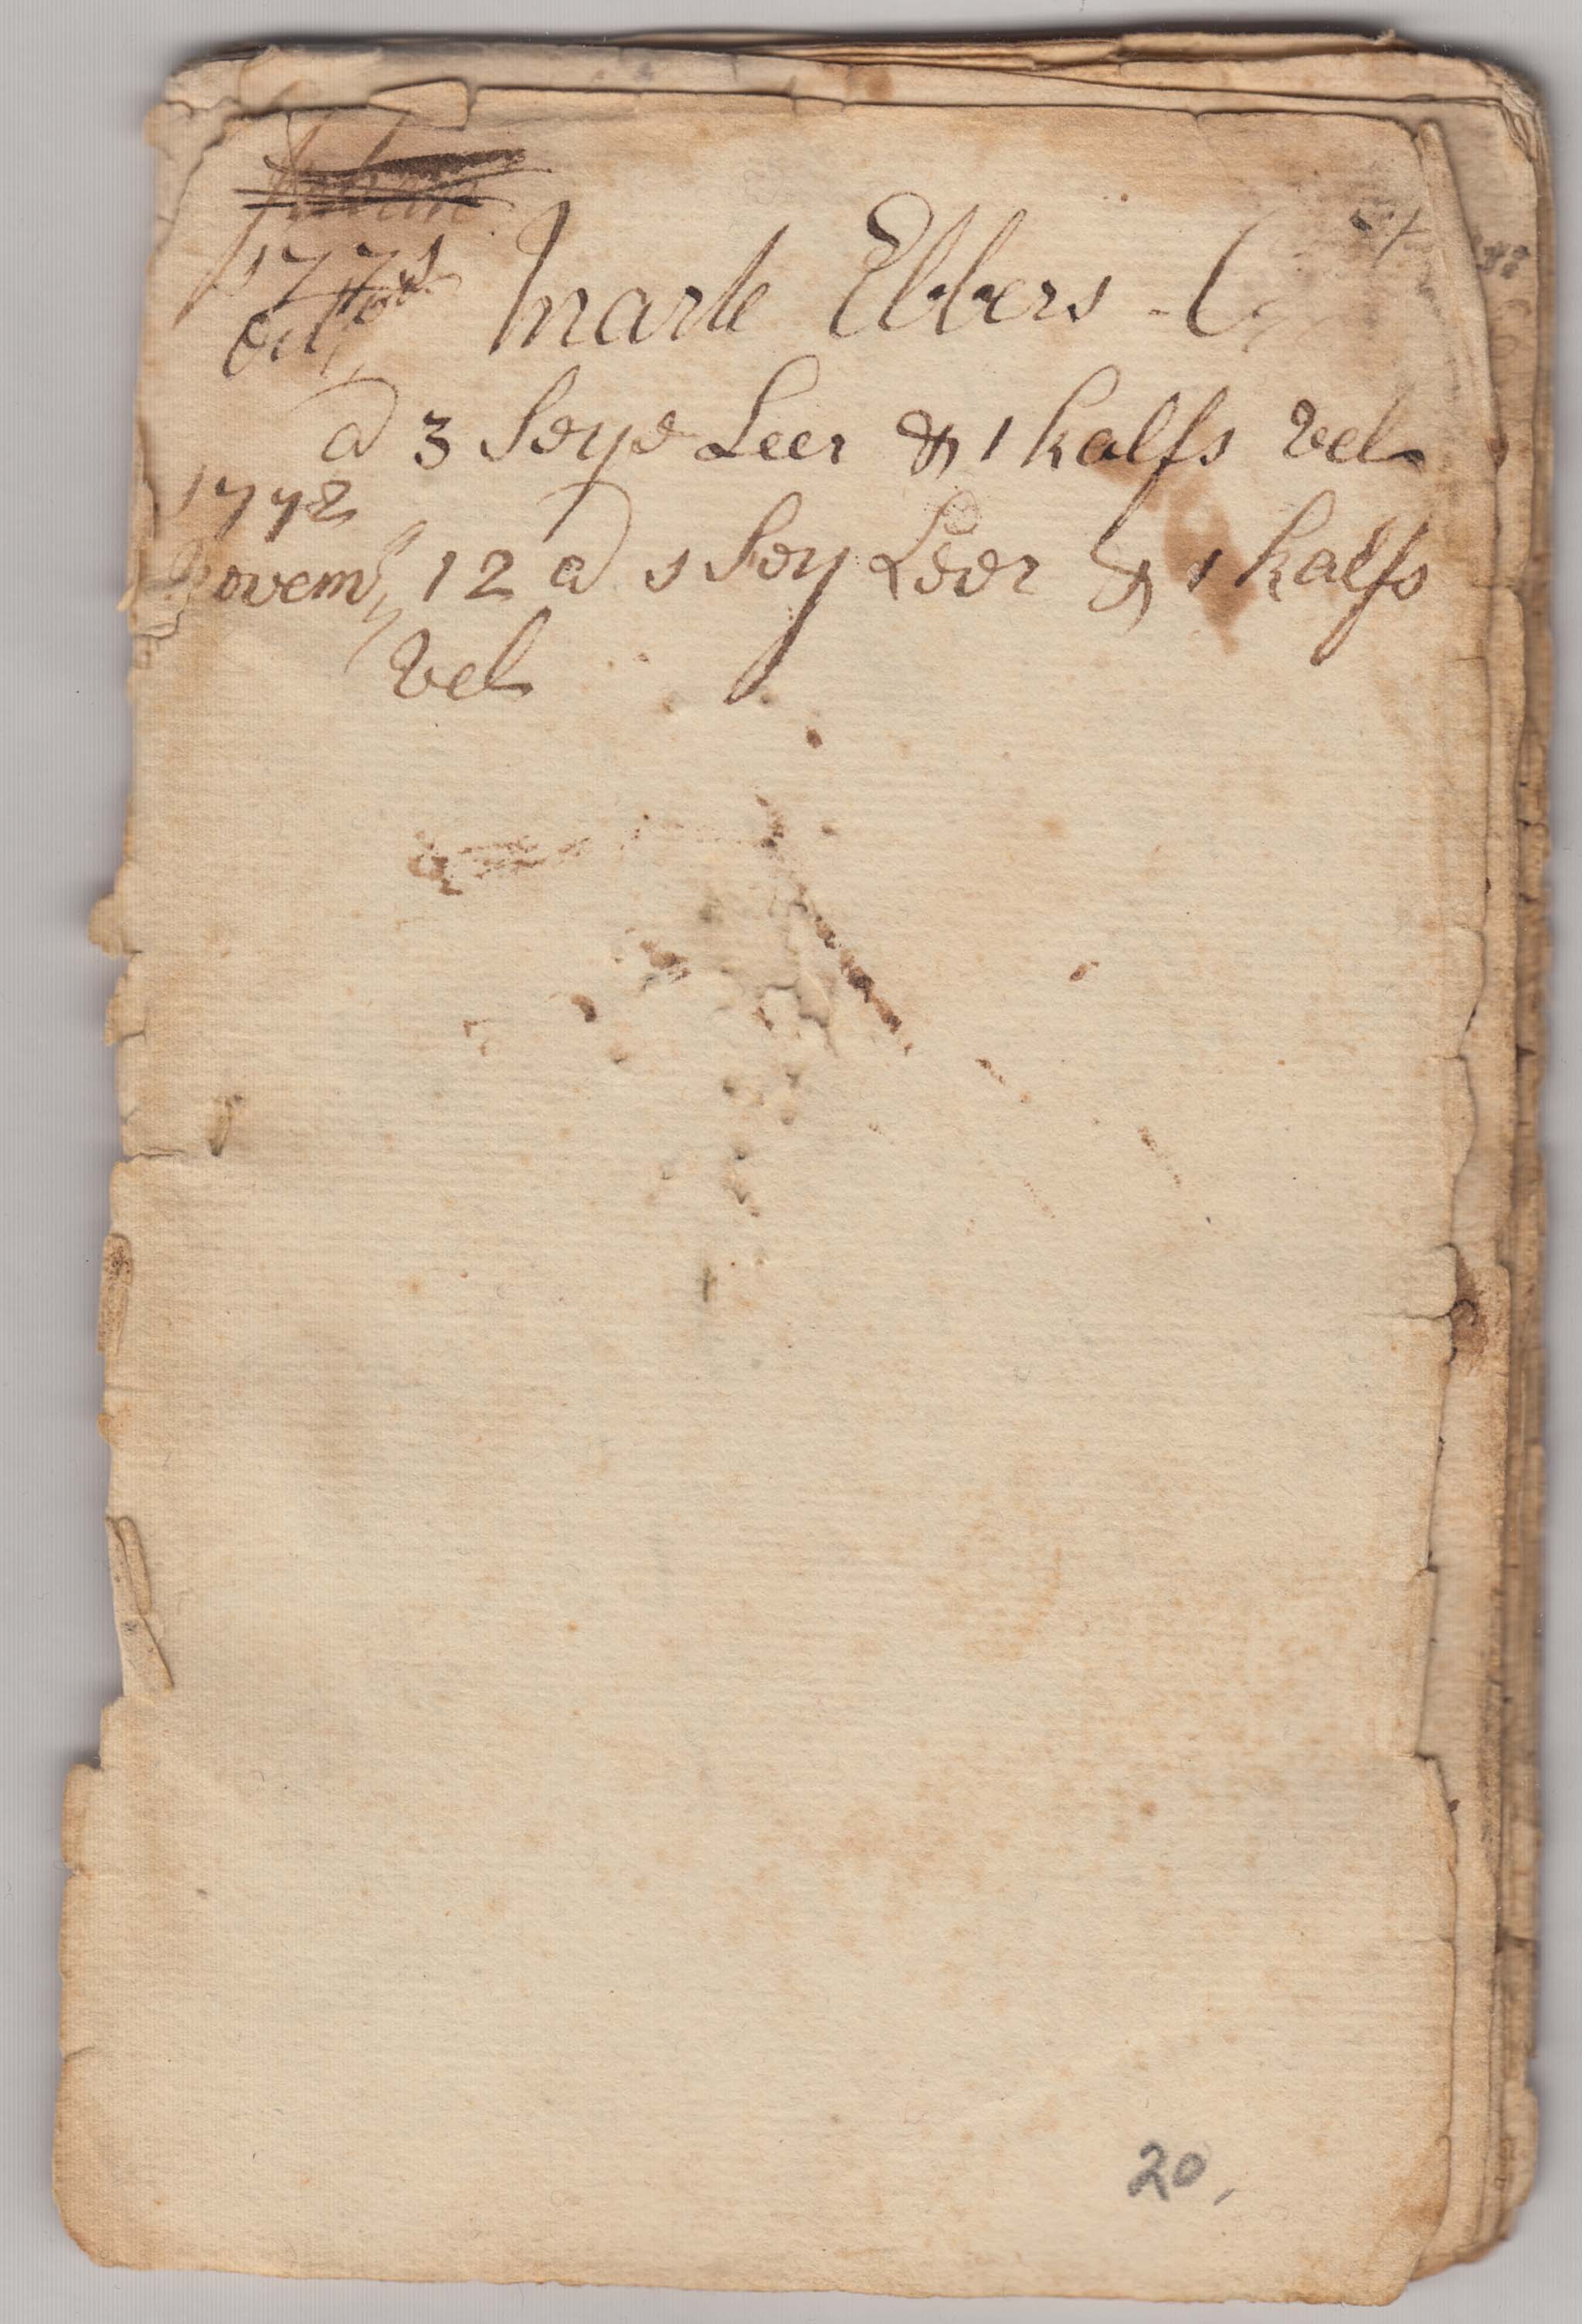 1771
Mark Ebbers - C
a 3 Soye Leer & 1 kalfs vel
1772
Novem 12 a 1 Soy Leer & 1 kalfs
vel
20,